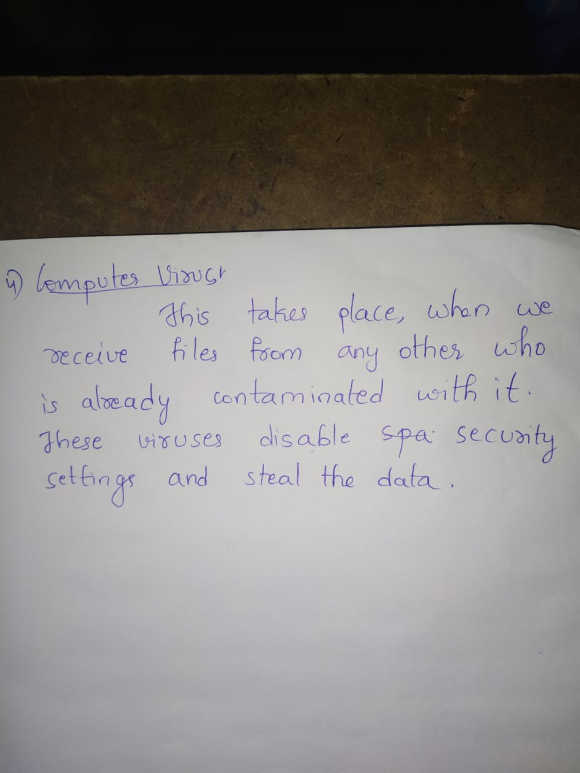 4) Computer Virus:
This takes place, when we
receive files from any other who
is already contaminated with it.
These viruses disable spa security
settings and steal the data.